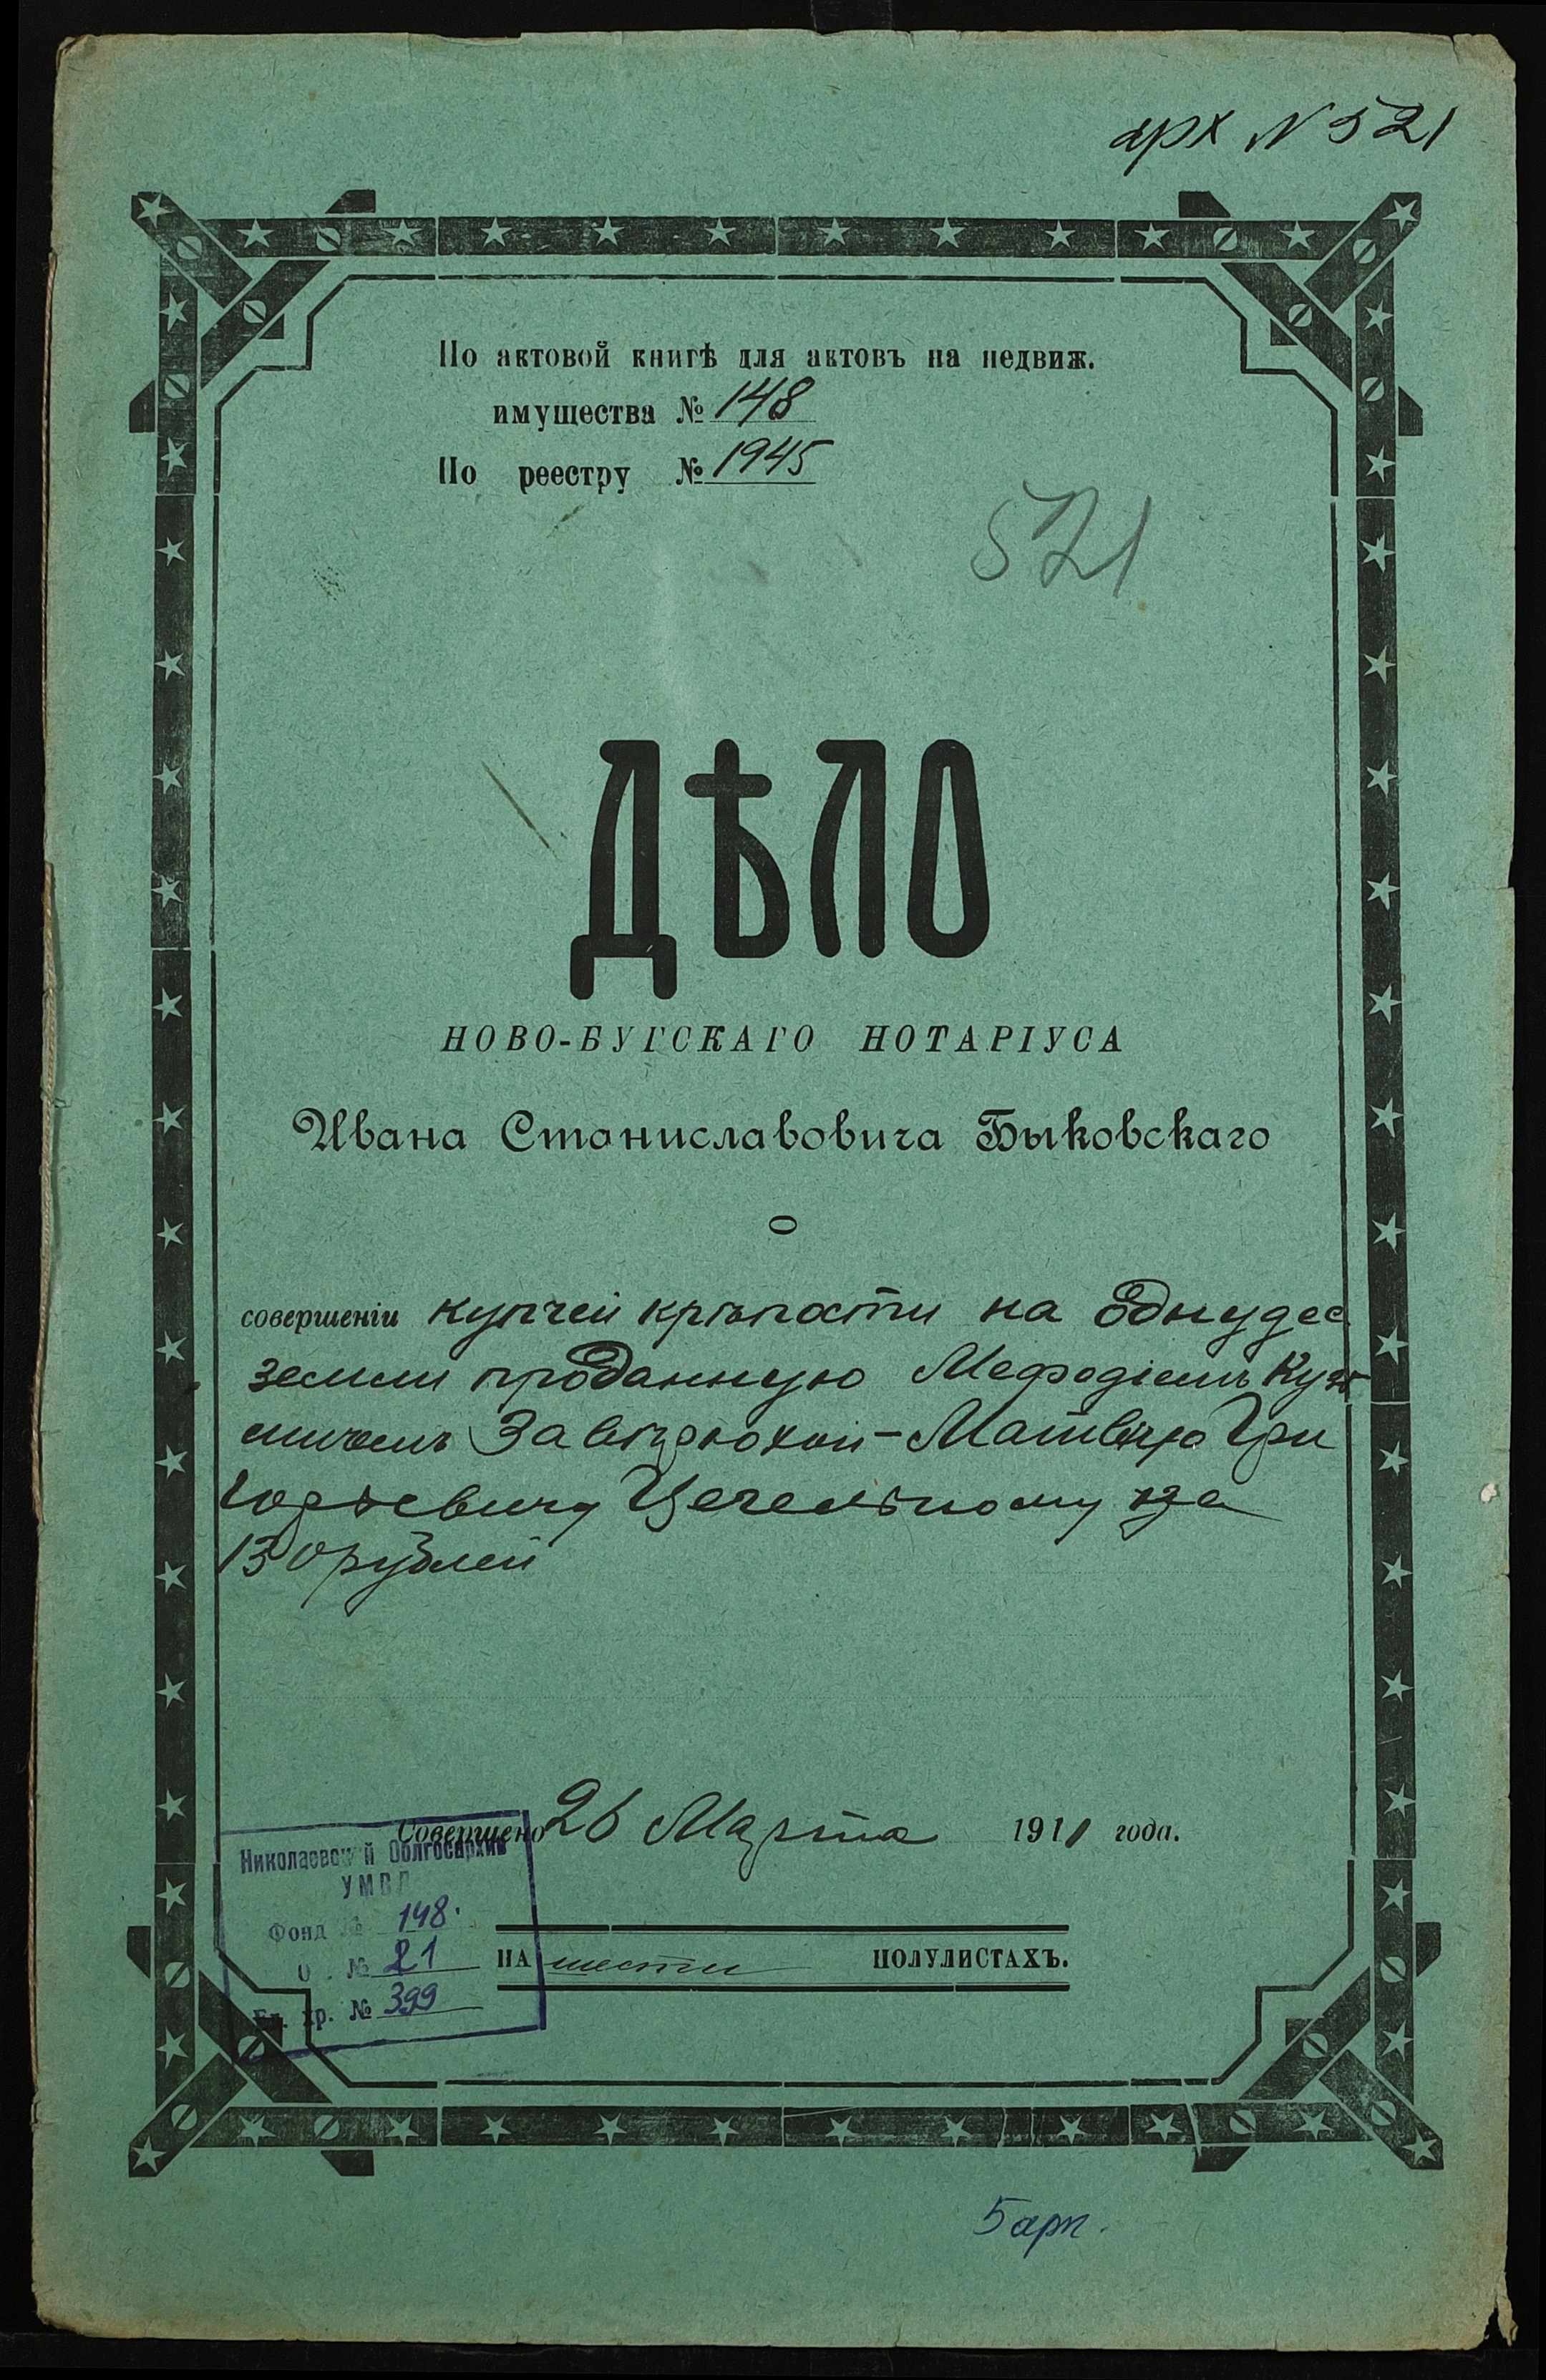 арх N 521
По актовой книгѣ для актовъ на недвиж.
имущества № 148
По реестру № 1945
521
ДѢЛО
НОВО-БУГСКАГО НОТАРІУСА
Ивана Станиславовича Быковскаго
О
совершеніи купчей крѣпости на одну дес
земли проданную Мефодіемъ Кузь
мичемъ Завѣрюхой - Матвѣю Гри
горьевичу Цегельному за
130 рублей
Совершено 26 Марта 1911 года.
Николаевский Облгосархив
УМВД
Фонд № 148.
О . № 21
НА шести ПОЛУЛИСТАХЪ.
Ед. хр. № 399
5 арк.